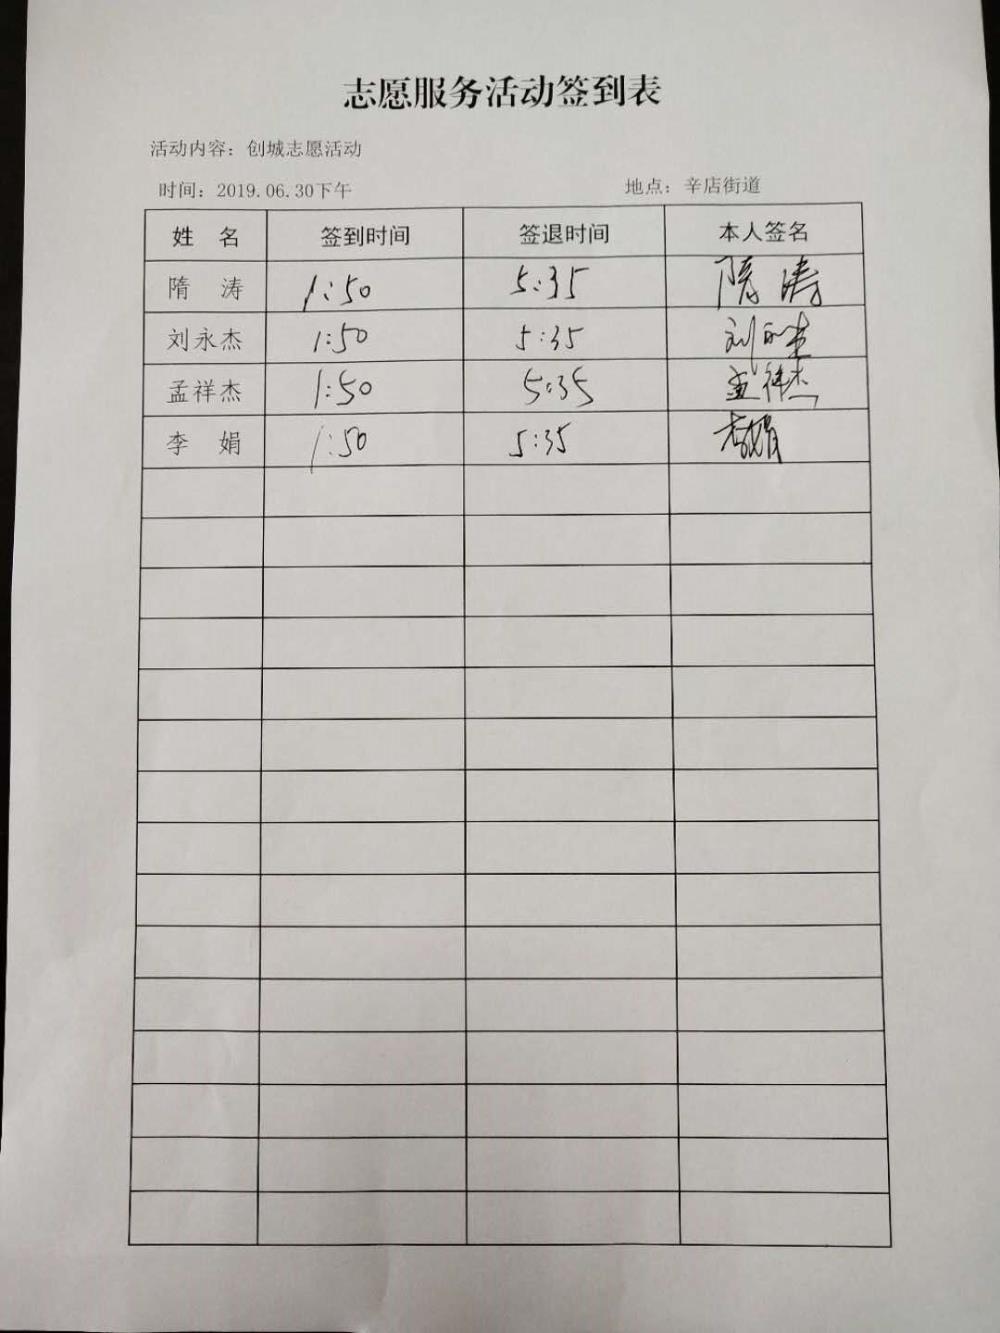 志愿服务活动签到表
活动内容：创城志愿活动
时间：2019.06.30下午 地点：辛店街道
姓 名 签到时间 签退时间 本人签名
隋 涛 1:50 5:35 隋涛
刘永杰 1:50 5:35 刘永杰
孟祥杰 1:50 5:35 孟祥杰
李 娟 1:50 5:35 李娟